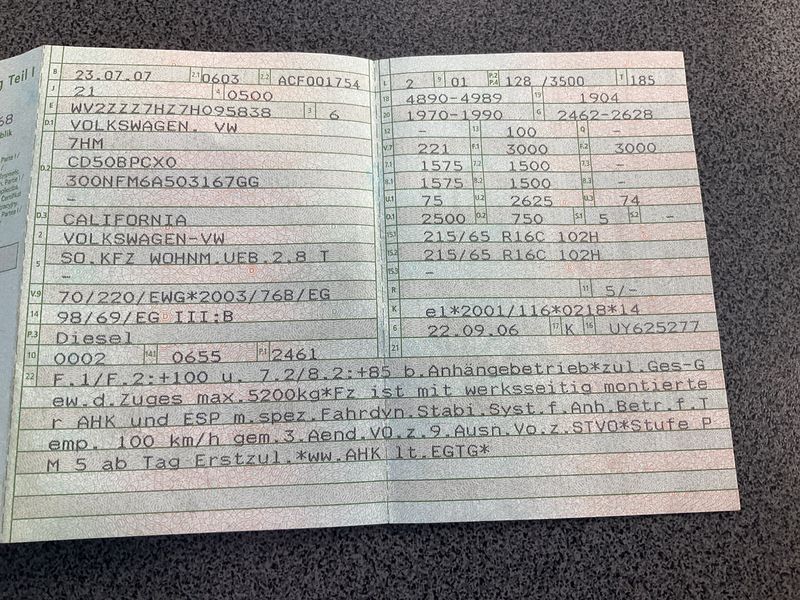 g Teil I
68
blik
B 23.07.07 2.1 0603 2.2 ACF001754
J 21 4 0500
E WV2ZZZ7HZ7H095838 3 6
D.1 VOLKSWAGEN, VW
7HM
D.2 CD50BPCX0
300NFM6A503167GG
-
D.3 CALIFORNIA
2 VOLKSWAGEN-VW
5 SO.KFZ WOHNM.UEB.2,8 T
-
V.9 70/220/EWG*2003/76B/EG
14 98/69/EG III;B
P.3 Diesel
10 0002 14.1 0655 P.1 2461
L 2 9 01 P.2 P.4 128 /3500 T 185
18 4890-4989 19 1904
20 1970-1990 G 2462-2628
12 - 13 100 Q -
V.7 221 F.1 3000 F.2 3000
7.1 1575 7.2 1500 7.3 -
8.1 1575 8.2 1500 8.3 -
U.1 75 U.2 2625 U.3 74
O.1 2500 O.2 750 S.1 5 S.2 -
15.1 215/65 R16C 102H
15.2 215/65 R16C 102H
15.3 -
R 11 5/-
K e1*2001/116*0218*14
6 22.09.06 17 K 16 UY625277
21
22 F.1/F.2:+100 u. 7.2/8.2:+85 b.Anhängebetrieb*zul.Ges-G
ew.d.Zuges max.5200kg*Fz ist mit werksseitig montierte
r AHK und ESP m.spez.Fahrdyn.Stabi.Syst.f.Anh.Betr.f.T
emp. 100 km/h gem.3.Aend.VO.z.9.Ausn.Vo.z.STVO*Stufe P
M 5 ab Tag Erstzul.*ww.AHK lt.EGTG*